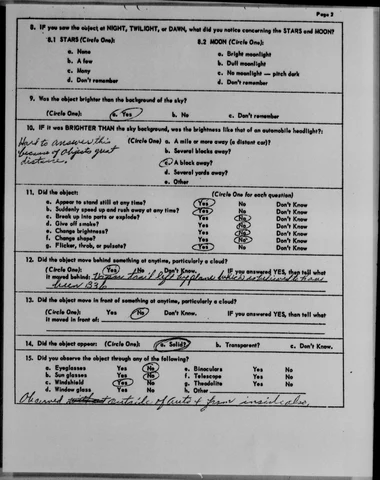 Page 2
8. IF you saw the object at NIGHT, TWILIGHT, or DAWN, what did you notice concerning the STARS and MOON?
8.1 STARS (Circle One): 8.2 MOON (Circle One):
a. None a. Bright moonlight
b. A few b. Dull moonlight
c. Many c. No moonlight — pitch dark
d. Don't remember d. Don't remember
9. Was the object brighter than the background of the sky?
(Circle One): a. Yes b. No c. Don't remember
10. IF it was BRIGHTER THAN the sky background, was the brightness like that of an automobile headlight?:
Hard to answer this (Circle One) a. A mile or more away (a distant car)?
because of objects great b. Several blocks away?
distance. c. A block away?
d. Several yards away?
e. Other
11. Did the object: (Circle One for each question)
a. Appear to stand still at any time? Yes No Don't Know
b. Suddenly speed up and rush away at any time? Yes No Don't Know
c. Break up into parts or explode? Yes No Don't Know
d. Give off smoke? Yes No Don't Know
e. Change brightness? Yes No Don't Know
f. Change shape? Yes No Don't Know
g. Flicker, throb, or pulsate? Yes No Don't Know
12. Did the object move behind something at anytime, particularly a cloud?
(Circle One): Yes No Don't Know. IF you answered YES, then tell what
it moved behind: Vapor Trail left by plane believed to have
been B36
13. Did the object move in front of something at anytime, particularly a cloud?
(Circle One): Yes No Don't Know. IF you answered YES, then tell what
it moved in front of:
14. Did the object appear: (Circle One): a. Solid? b. Transparent? c. Don't Know.
15. Did you observe the object through any of the following?
a. Eyeglasses Yes No e. Binoculars Yes No
b. Sun glasses Yes No f. Telescope Yes No
c. Windshield Yes No g. Theodolite Yes No
d. Window glass Yes No h. Other
Observed outside of auto & from inside also.